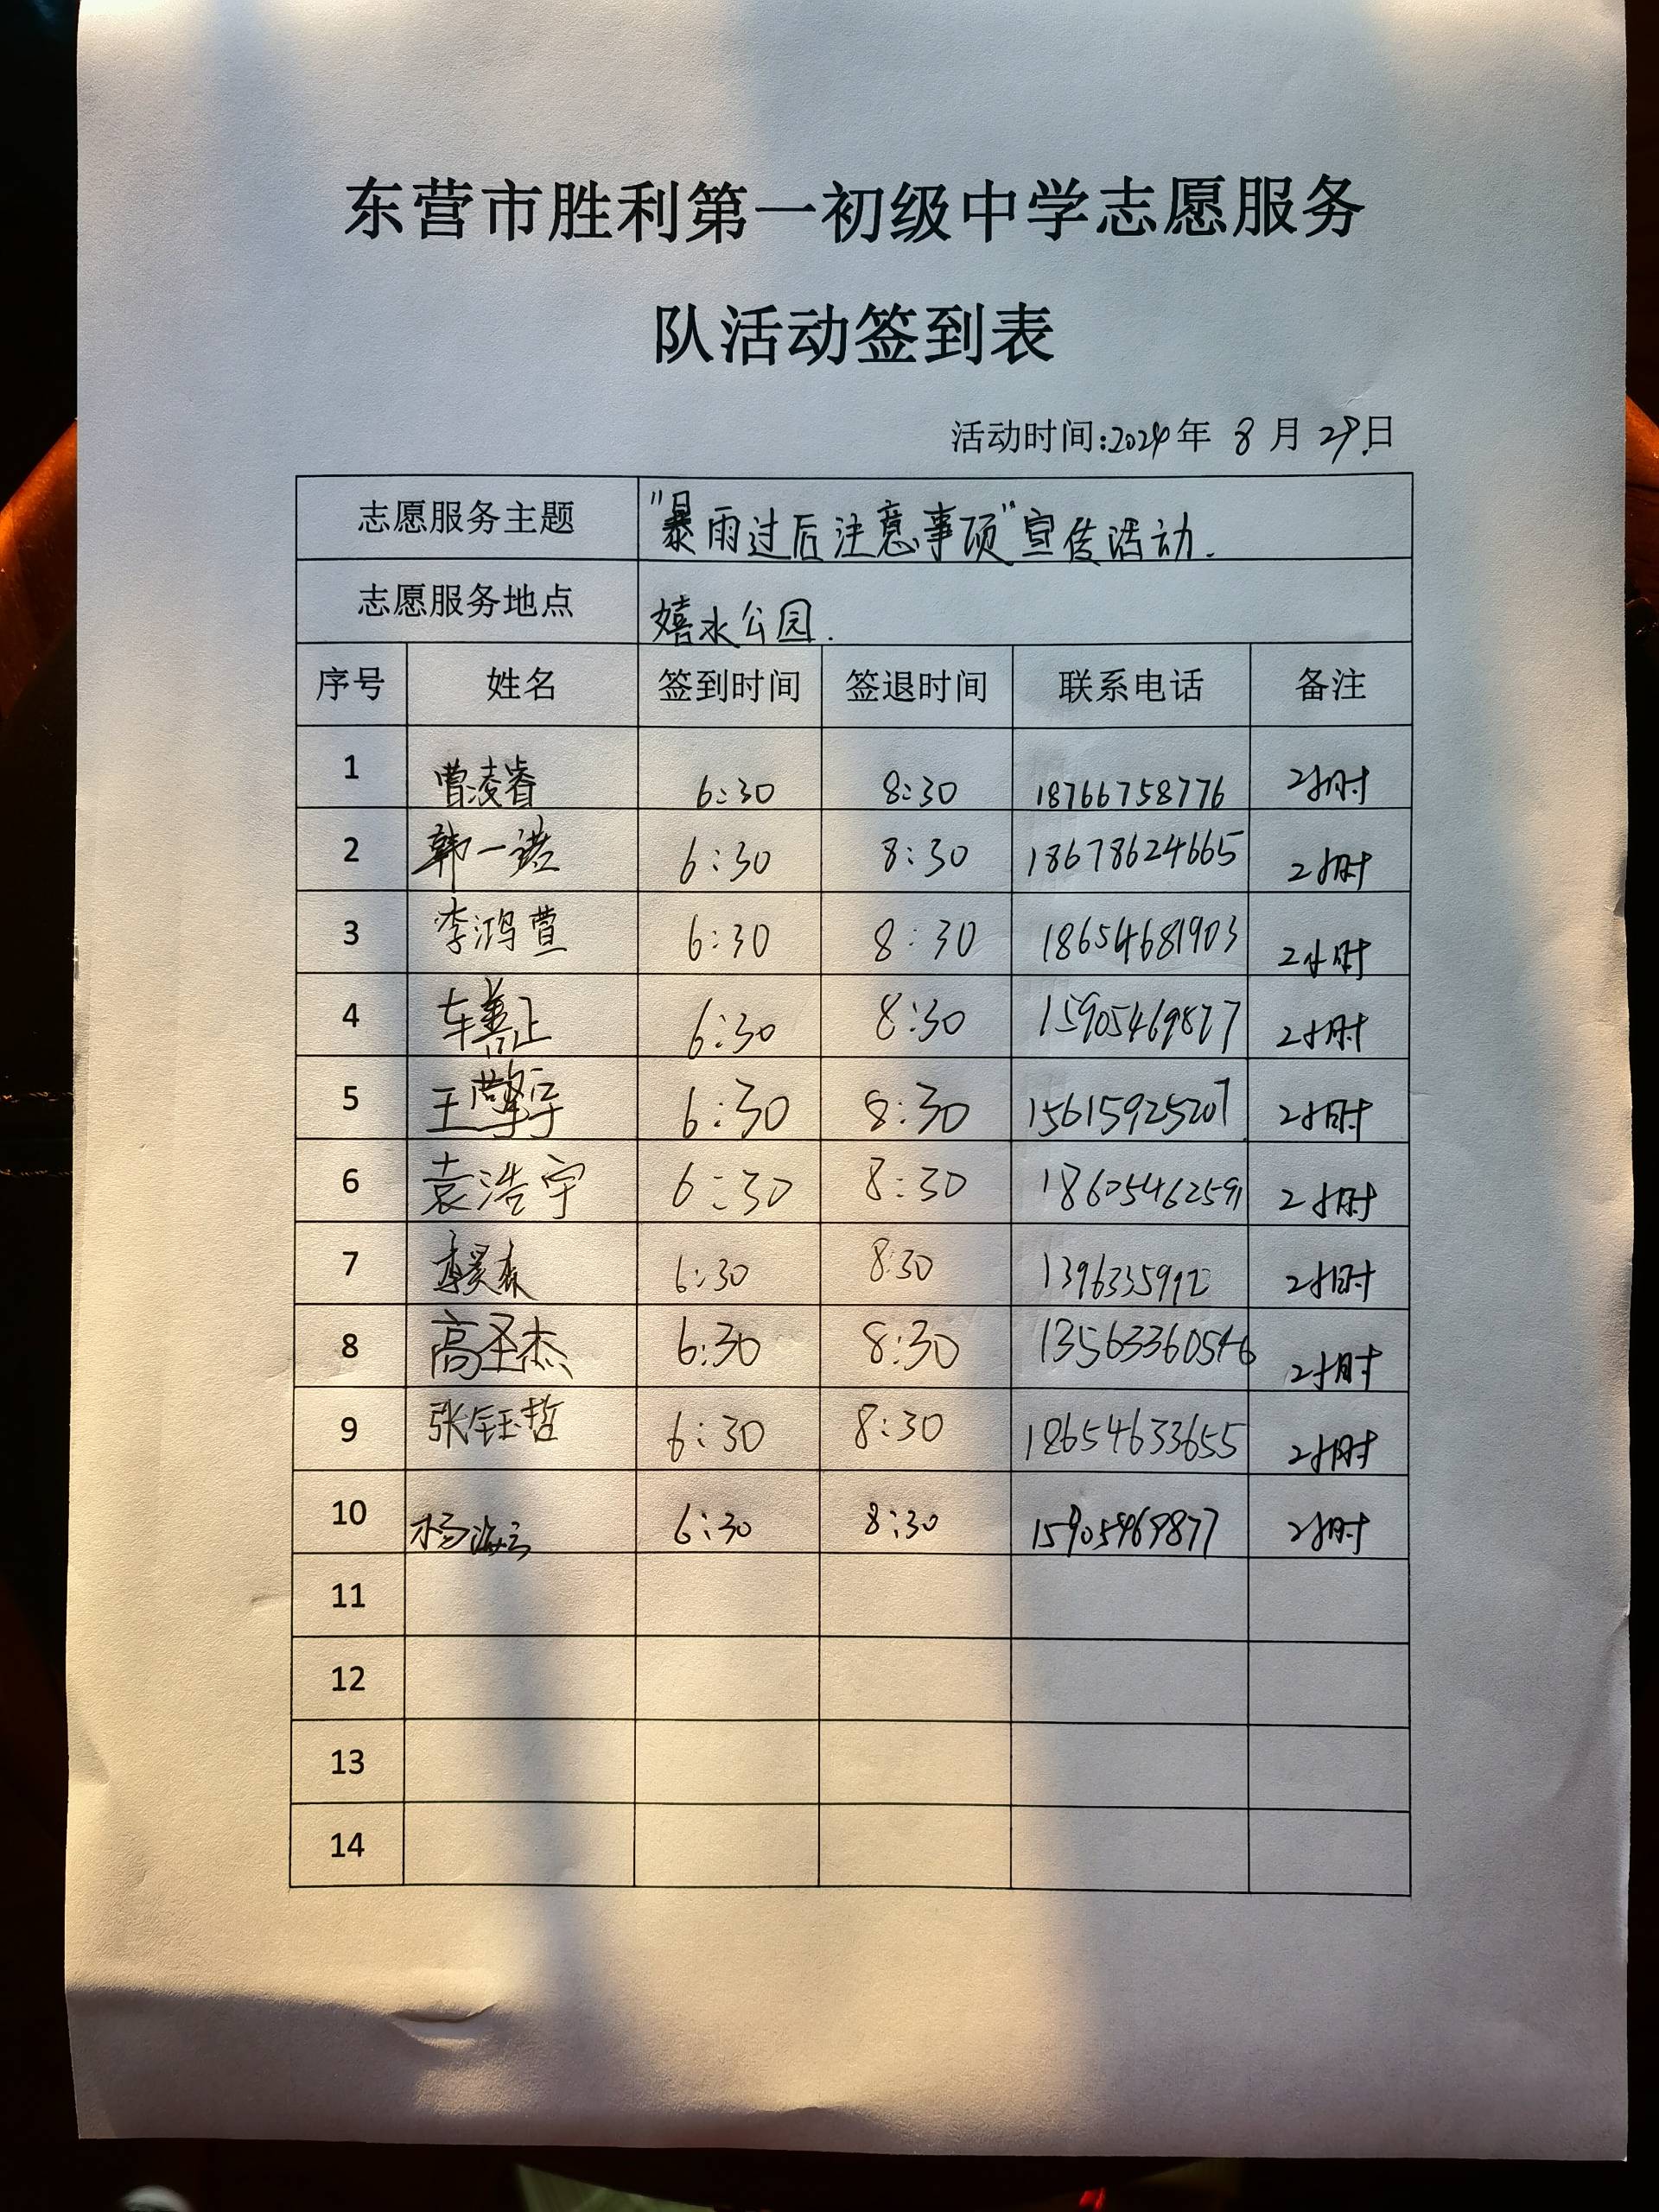 东营市胜利第一初级中学志愿服务
队活动签到表
活动时间:2024年 8 月 29日
志愿服务主题 "暴雨过后注意事项"宣传活动.
志愿服务地点 嬉水公园.
序号 姓名 签到时间 签退时间 联系电话 备注
1 曹凌睿 6:30 8:30 18766758776 2小时
2 韩一诺 6:30 8:30 18678624665 2小时
3 李鸿萱 6:30 8:30 18654681903 2小时
4 车善正 6:30 8:30 15905469877 2小时
5 王擎宇 6:30 8:30 15615925207 2小时
6 袁浩宇 6:30 8:30 18605462591 2小时
7 6:30 8:30 2小时
8 高圣杰 6:30 8:30 13563360546 2小时
9 张钰哲 6:30 8:30 18654633655 2小时
10 杨 6:30 8:30 15905469877 2小时
11
12
13
14